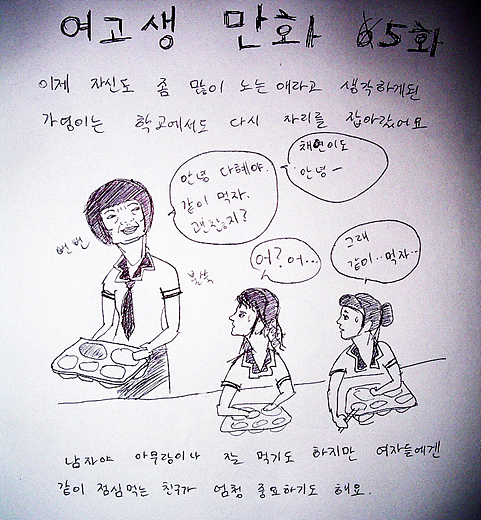 여고생 만화 65화
이제 자신도 좀 많이 노는 애라고 생각하게된
가영이는 학교에서도 다시 자리를 잡아갔어요
안녕 다혜야.
같이 먹자.
괜찮지?
채연이도
안녕~
뻔뻔
불쑥
어?어...
그래
같이..먹자..
남자야 아무랑이나 잘 먹기도 하지만 여자들에겐
같이 점심먹는 친구가 엄청 중요하기도 해요.